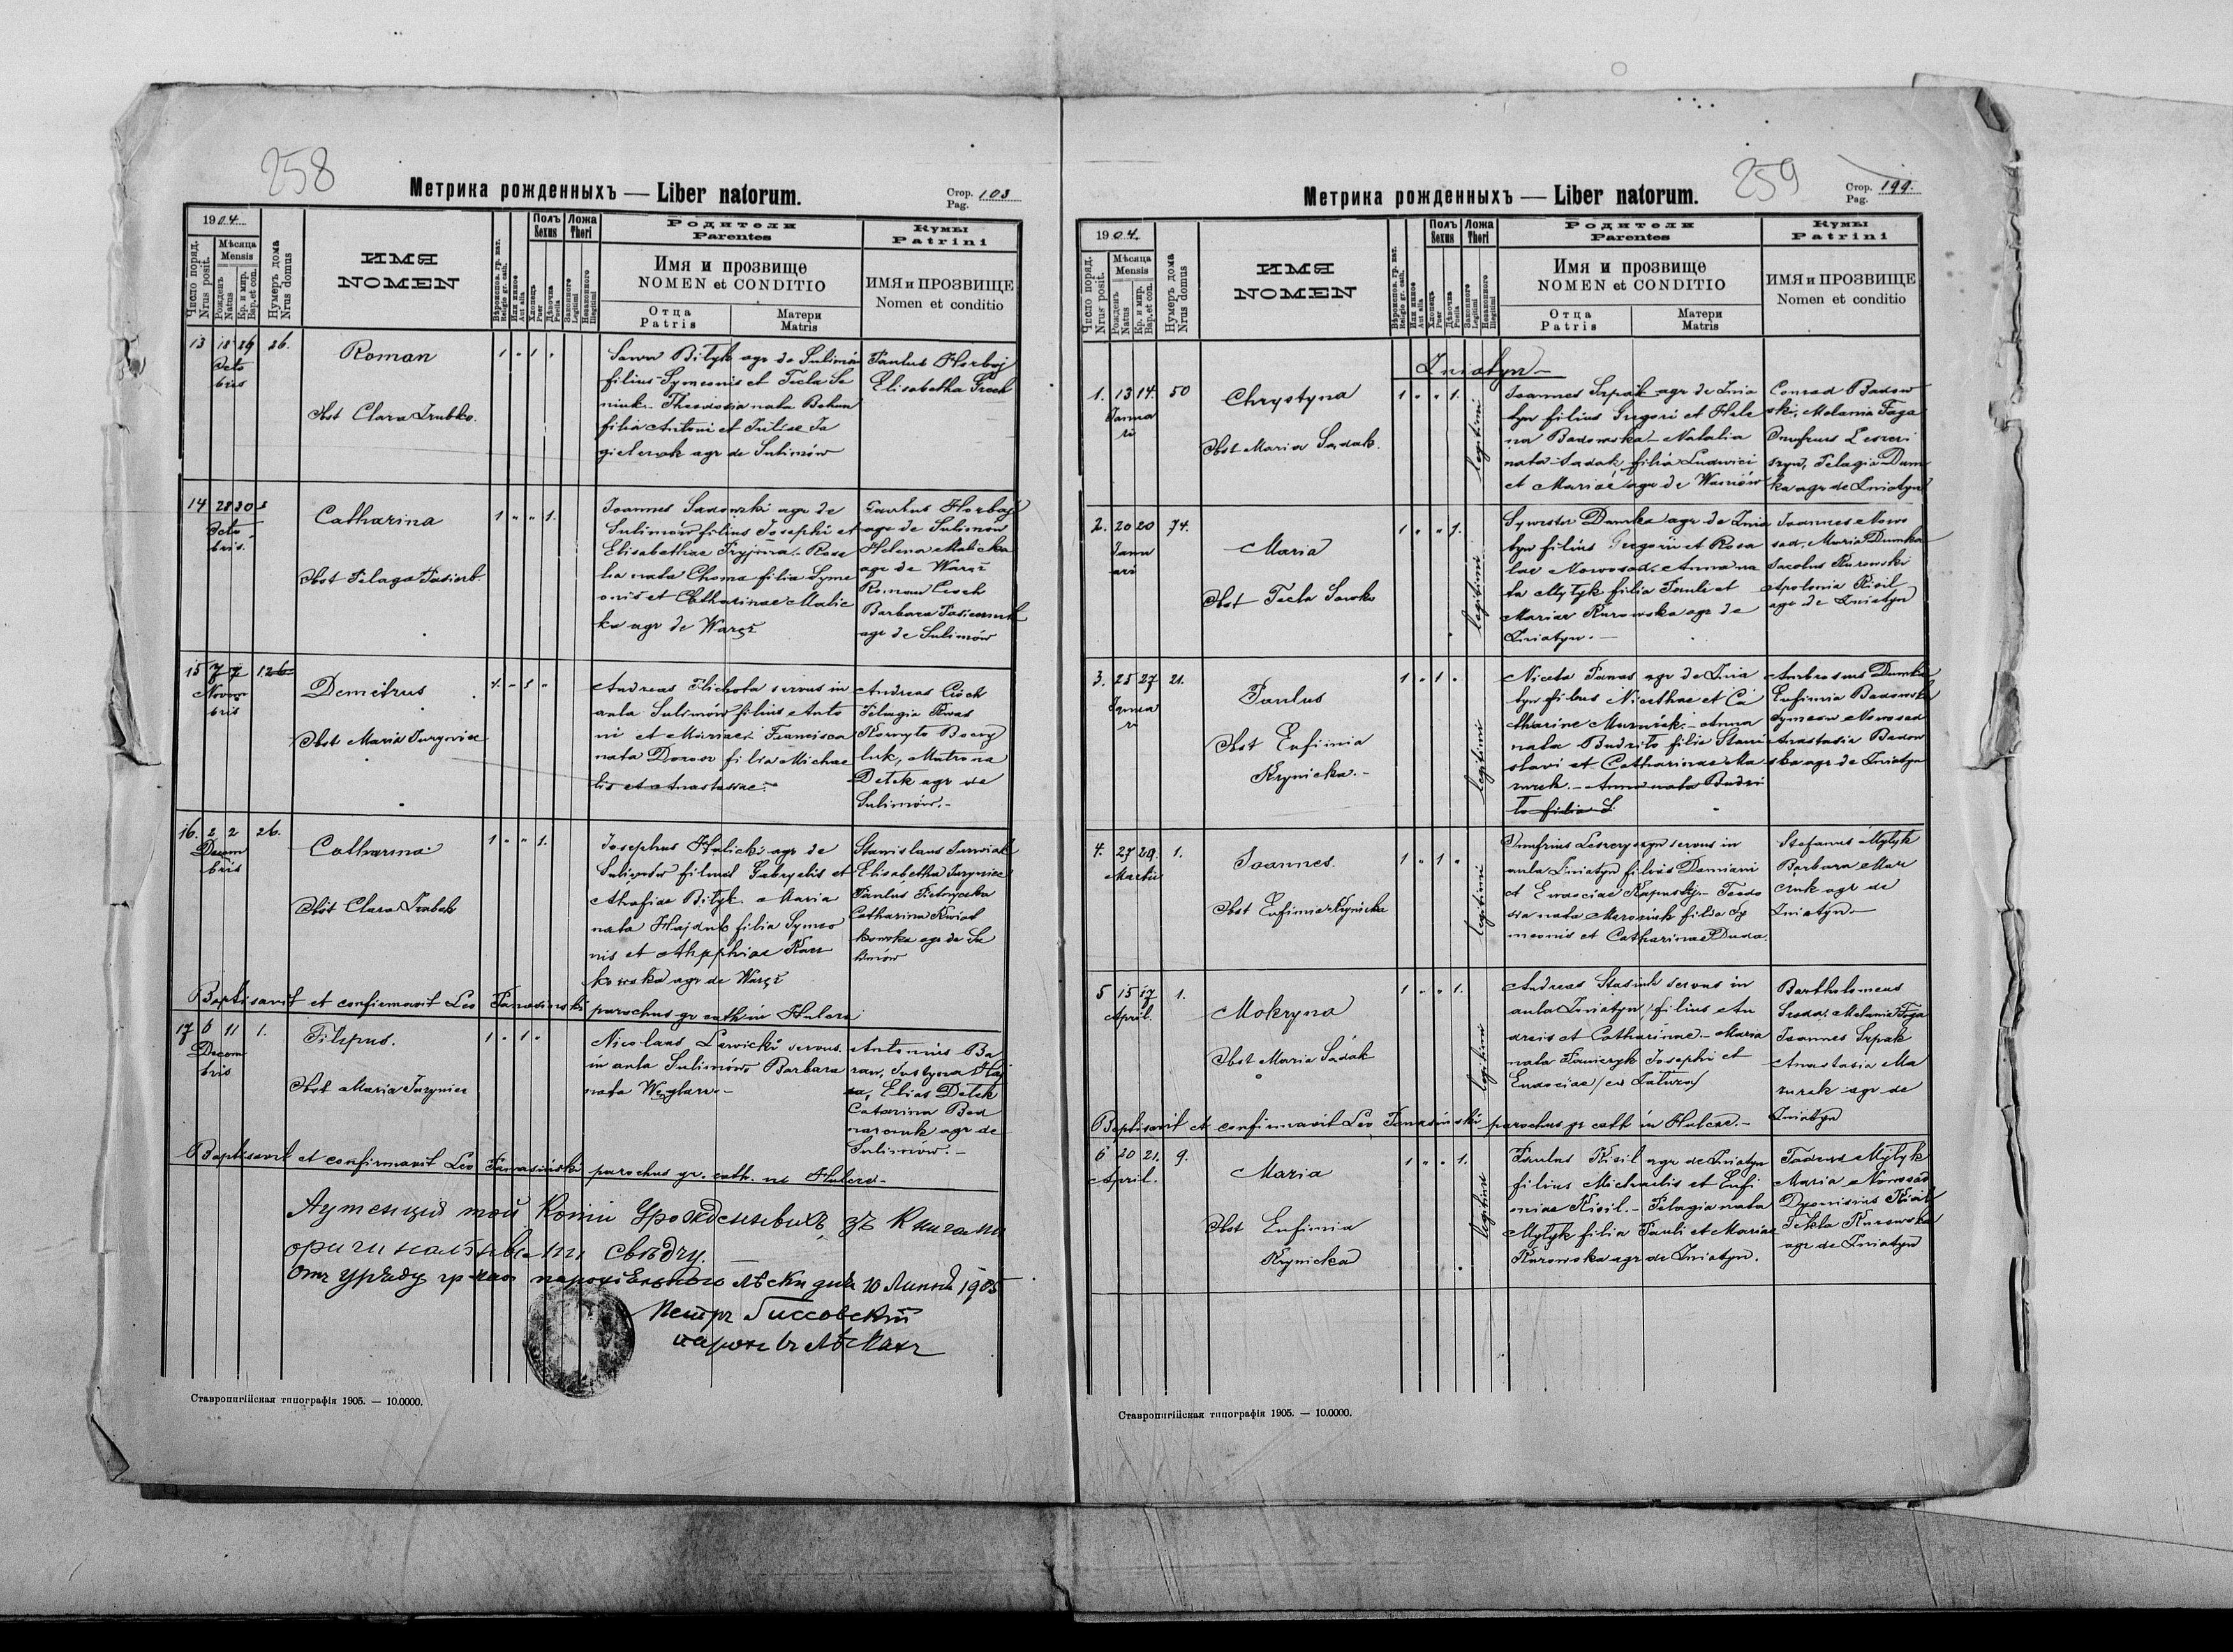 258
Метрика рожденныхъ — Liber natorum.
Стор. 103
Pag.
1904.
Число поряд.
Nrus posit.
Мѣсяца
Mensis
Рожденъ
Natus
Кр. и мир.
Bap. et con.
Нумеръ дома
Nrus domus
ИМЯ
NOMEN
Вѣроисповѣд. гр. кат.
Religio gr. cath.
Или иное
Aut alia
Полъ
Sexus
Хлопецъ
Puer
Дѣвочка
Puella
Ложа
Thori
Законного
Legitimi
Незаконного
Illegitimi
Родители
Parentes
Имя и прозвище
NOMEN et CONDITIO
Отца
Patris
Матери
Matris
Кумы
Patrini
ИМЯ и ПРОЗВИЩЕ
Nomen et conditio
13 18 29 26.
Octo
bris
Roman
Obst Clara Trubko.
1 " 1 "
Sawa Bityk agr de Sulimów
filius Symeonis et Tecla Se
niuk. Theodosia nata Bohun
filia Antoni et Juliae Ja
gielczok agr de Sulimów
Paulus Horbaj
Elisabetha Groch
14 28 30
Octo
bris.
Catharina
Obst Pelaga
1 " " 1.
Joannes Sadowski agr de
Sulimów filius Josephi et
Elisabethae Pryjma. Rosa
lia nata Choma filia Syme
onis et Catharinae Malic
ka agr de Waręż
Horbaj
agr de Sulimów
Helena Malicka
agr de Waręż
Roman Cioch
Barbara
agr de Sulimów
15 7 7
Novem
bris
Demetrus
Obst Maria Juryniec
1. " 1 "
Andreas Plichota servus in
aula Sulimów filius Anto
ni et Mariae. Francisca
nata Doroso filia Michae
lis et Anastasiae.
Andreas Cioch
Pelagia Kwas
luk, Matrona
Detek agr de
Sulimów.-
16. 2 2 26.
Decem
bris
Catharina
Obst Clara Trubek
1 " " 1.
Josephus Halicki agr de
Sulimów filius Gabryelis et
Ahafiae Bityk. Maria
nata Hajduk filia Symeo
nis et
kowska agr de Waręż
Stanislaus
Elisabetha Juryniec
Paulus
Catharina Kwiat
kowska agr de Su
limów
Baptisavit et confirmavit Leo Tanasinski parochus gr cath in Hulcze
17 6 11 1.
Decem
bris
Filipus.
Obst Maria Juryniec
1. " 1 "
Nicolaus Lewicki servus
in aula Sulimów Barbara
nata Węglarz.-
Antonius Ba
ran, Justyna Haj
da, Elias Detek
Catarina Bed
naruk agr de
Sulimów.-
Baptisavit et confirmavit Leo Tanasinski parochus gr. cath. in Hulcze-
зъ Книгами
оригинальными свѣдчу.
1905
Петръ
Ставропигійская типографія 1905. — 10.0000.
259
Метрика рожденныхъ — Liber natorum.
Стор. 199.
Pag.
1904.
Число поряд.
Nrus posit.
Мѣсяца
Mensis
Рожденъ
Natus
Кр. и мир.
Bap. et con.
Нумеръ дома
Nrus domus
ИМЯ
NOMEN
Вѣроисповѣд. гр. кат.
Religio gr. cath.
Или иное
Aut alia
Полъ
Sexus
Хлопецъ
Puer
Дѣвочка
Puella
Ложа
Thori
Законного
Legitimi
Незаконного
Illegitimi
Родители
Parentes
Имя и прозвище
NOMEN et CONDITIO
Отца
Patris
Матери
Matris
Кумы
Patrini
ИМЯ и ПРОЗВИЩЕ
Nomen et conditio
Żniatyn-
1. 13 14. 50
Janua
ri
Chrystyna
Obst Maria Sadak.
1 " " 1.
legitimi
Joannes Srpak agr de Żnia
tyn filius Gregori et Hele
na Badowska - Natalia
nata Sadak filia Ludwici
et Mariae agr de Waniów
Conrad Badow
ski, Melania Faga
Onufrius Leszczy
szyn, Pelagia Dum
ka agr de Żniatyn
2. 20 20 74.
Janu
ari
Maria
Obst Tecla Soroko
1 " " 1.
legitimi
Sywester Dumka agr de Żnia
tyn filius Gregorii et Rosa
lae Nowosad. Anna na
ta Mytyk filia Pauli et
Mariae Kurowska agr de
Żniatyn.-
Joannes Nowo
sad, Maria Dumka
Jacobus Kurowski
Apolonia Kisil
agr de Żniatyn
3. 25 27 21.
Janua
ri
Paulus
Obst Eufimia
Krynicka.-
1 " 1 "
legitimi
Niceta Panas agr de Żnia
tyn filius Nicethae et Ca
tharine Mazurek. - Anna
nata Budzito filia Stani
slavi et Catharinae Ma
zurek. - Anna nata Budzi
to filia S.
Ambrosius Dumka
Eufimia Badowska
Symeon Nowosad
Anastasia Badow
ska agr de Żniatyn
4. 27 29. 1.
Martii
Joannes.
Obst Eufimia Krynicka
1 " 1 "
legitimi
Onufrius Leszczyszyn servus in
aula Żniatyn filius Damiani
et Eudociae Kapusty. Teodo
sia nata Maroniuk filia Sy
meonis et Catharinae Duda.
Stefanus Mytyk
Barbara Mar
cruk agr de
Żniatyn-
5 15 17 1.
April.
Mokryna
Obst Maria Sadak
1 " " 1.
legitimi
Andreas Stasiuk servus in
aula Żniatyn filius An
dreis et Catharinae - Maria
nata Pawczyk Josephi et
Eudociae
Bartholomeus
Sroda, Melania Faga
Joannes Srpak
Anastasia Ma
zurek agr de
Żniatyn
Baptisavit et confirmavit Leo Tanasinski parochus gr cath in Hulcze.-
6 20 21. 9.
April.
Maria
Obst Eufimia
Krynicka
1 " " 1.
legitimi
Paulus Kisil agr de Żniatyn
filius Michaelis et Eufi
miae Kisil. - Pelagia nata
Mytyk filia Pauli et Mariae
Kurowska agr de Żniatyn.
Tadeus Mytyk
Maria Nowosad
Dyonisius Kisil
Tekla Kurowska
agr de Żniatyn
Ставропигійская типографія 1905. — 10.0000.